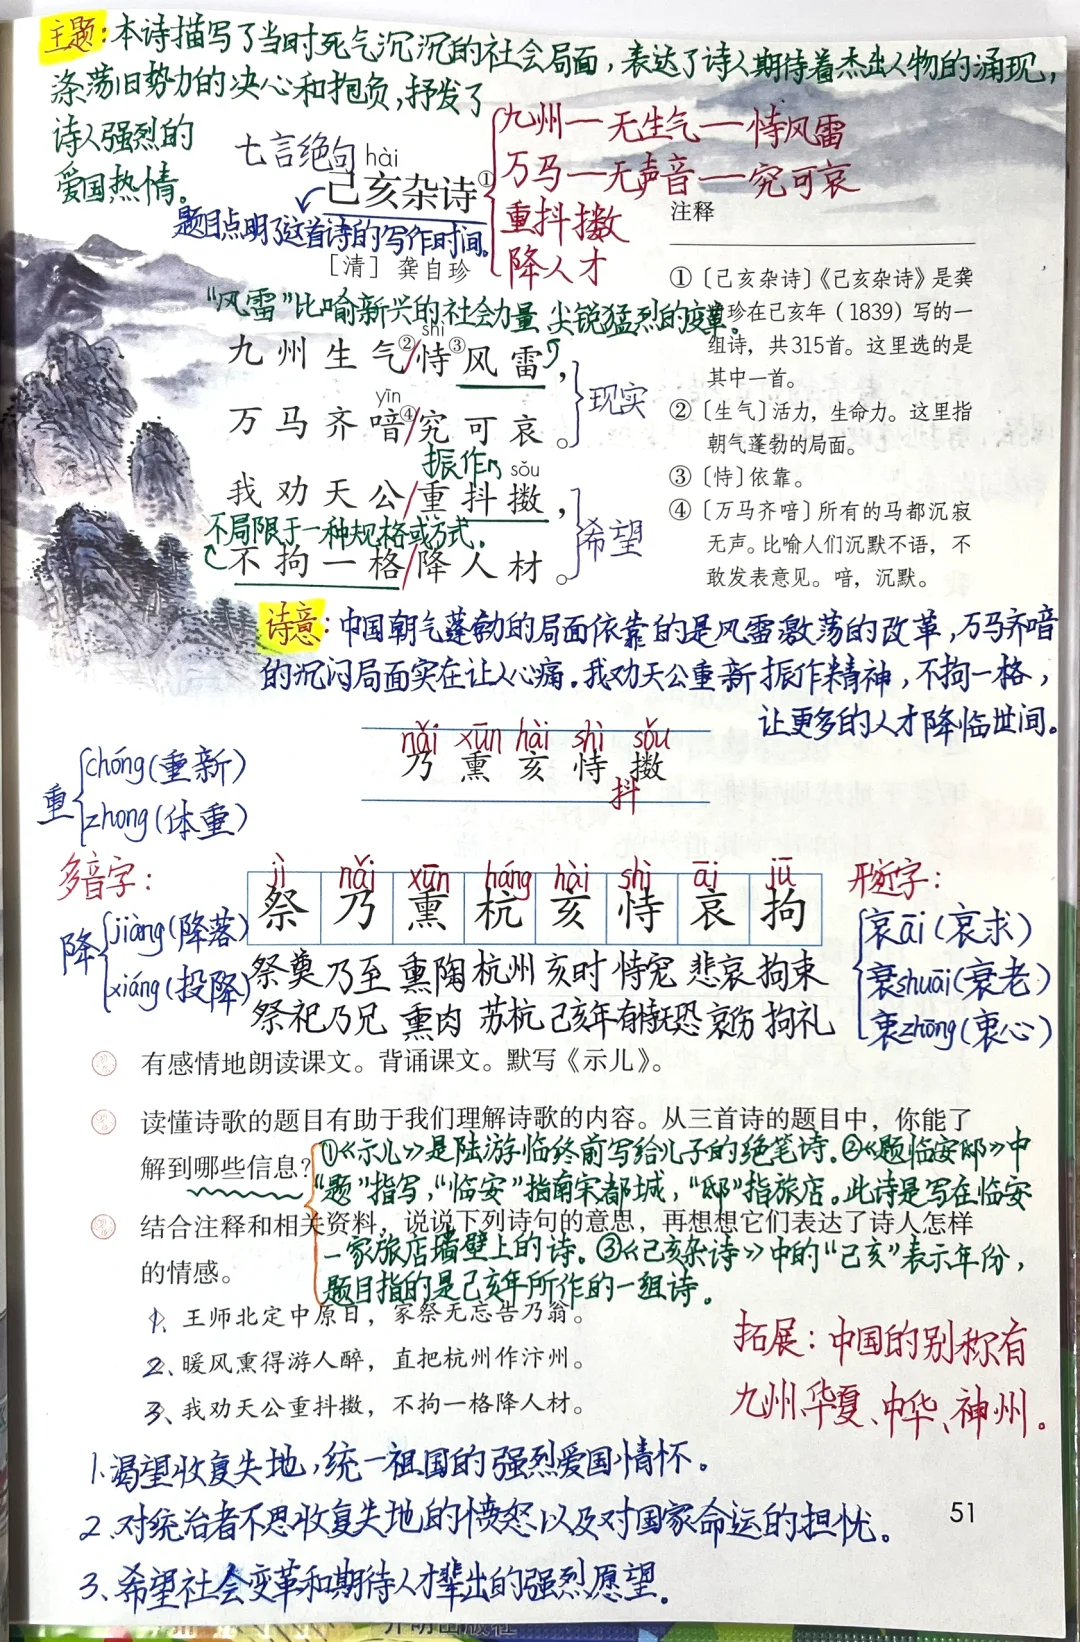 主题:本诗描写了当时死气沉沉的社会局面,表达了诗人期待着杰出人物的涌现,
涤荡旧势力的决心和抱负,抒发了
诗人强烈的
爱国热情。
九州一无生气一恃风雷
万马一无声音一究可哀
重抖擞
降人才
七言绝句
hài
己亥杂诗①
题目点明了这首诗的写作时间。
[清] 龚自珍
"风雷"比喻新兴的社会力量 尖锐猛烈的变革。
shì
九州生气②/恃③风雷,
yīn
万马齐喑④/究可哀。
现实
振作
sǒu
我劝天公/重抖擞,
不局限于一种规格或方式。
不拘一格/降人材。
希望
注释
①〔己亥杂诗〕《己亥杂诗》是龚
自珍在己亥年(1839)写的一
组诗,共315首。这里选的是
其中一首。
②〔生气〕活力,生命力。这里指
朝气蓬勃的局面。
③〔恃〕依靠。
④〔万马齐喑〕所有的马都沉寂
无声。比喻人们沉默不语,不
敢发表意见。喑,沉默。
诗意:中国朝气蓬勃的局面依靠的是风雷激荡的改革,万马齐喑
的沉闷局面实在让人心痛。我劝天公重新振作精神,不拘一格,
让更多的人才降临世间。
nǎi xūn hài shì sǒu
乃 熏 亥 恃 擞
抖
重
chóng(重新)
zhong(体重)
多音字:
降
jiàng(降落)
xiáng(投降)
jì nǎi xūn háng hài shì āi jū
祭 乃 熏 杭 亥 恃 哀 拘
祭奠 乃至 熏陶 杭州 亥时 恃宠 悲哀 拘束
祭祀 乃兄 熏肉 苏杭 己亥年 有恃无恐 哀伤 拘礼
形近字:
哀āi(哀求)
衰shuāi(衰老)
衷zhōng(衷心)
有感情地朗读课文。背诵课文。默写《示儿》。
读懂诗歌的题目有助于我们理解诗歌的内容。从三首诗的题目中,你能了
解到哪些信息?
①《示儿》是陆游临终前写给儿子的绝笔诗。②《题临安邸》中
"题"指写,"临安"指南宋都城,"邸"指旅店。此诗是写在临安
一家旅店墙壁上的诗。③《己亥杂诗》中的"己亥"表示年份,
题目指的是己亥年所作的一组诗。
结合注释和相关资料,说说下列诗句的意思,再想想它们表达了诗人怎样
的情感。
1、王师北定中原日,家祭无忘告乃翁。
2、暖风熏得游人醉,直把杭州作汴州。
3、我劝天公重抖擞,不拘一格降人材。
拓展:中国的别称有
九州、华夏、中华、神州。
1.渴望收复失地,统一祖国的强烈爱国情怀。
2.对统治者不思收复失地的愤怒以及对国家命运的担忧。
3、希望社会变革和期待人才辈出的强烈愿望。
51